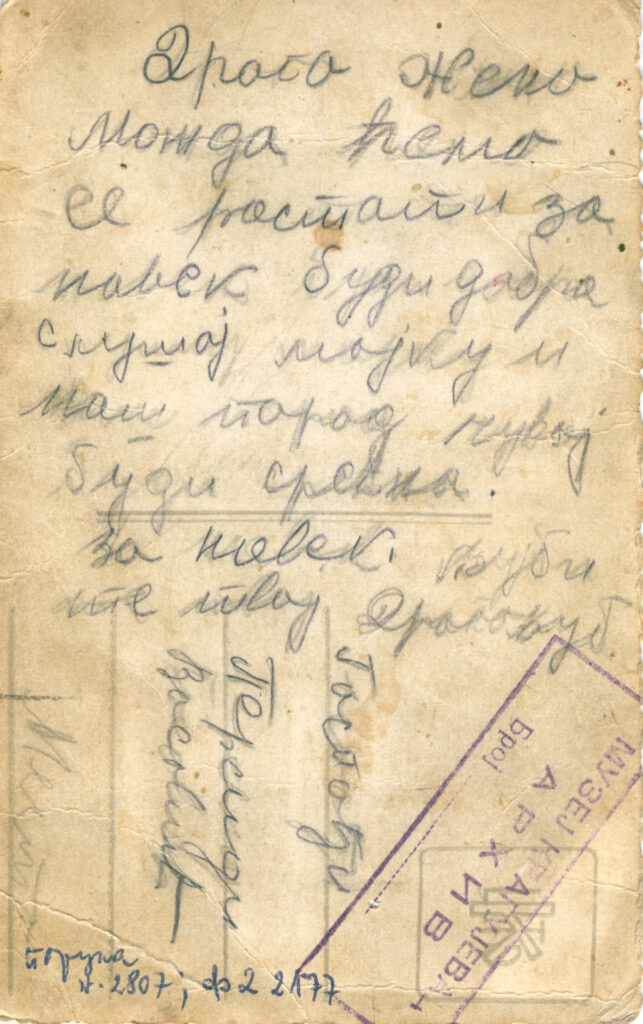 Драга Жено
можда ћемо
се растати за
навек буди добра
слушај мајку и
наш пород чувај
буди срећна.
за навек. љуби
те твој Драгољуб.
Госпођи
Персиди
МУЗЕЈ КРАГУЈЕВАЦ
АРХИВ
Број
порука
И. 2807; ф2 2177